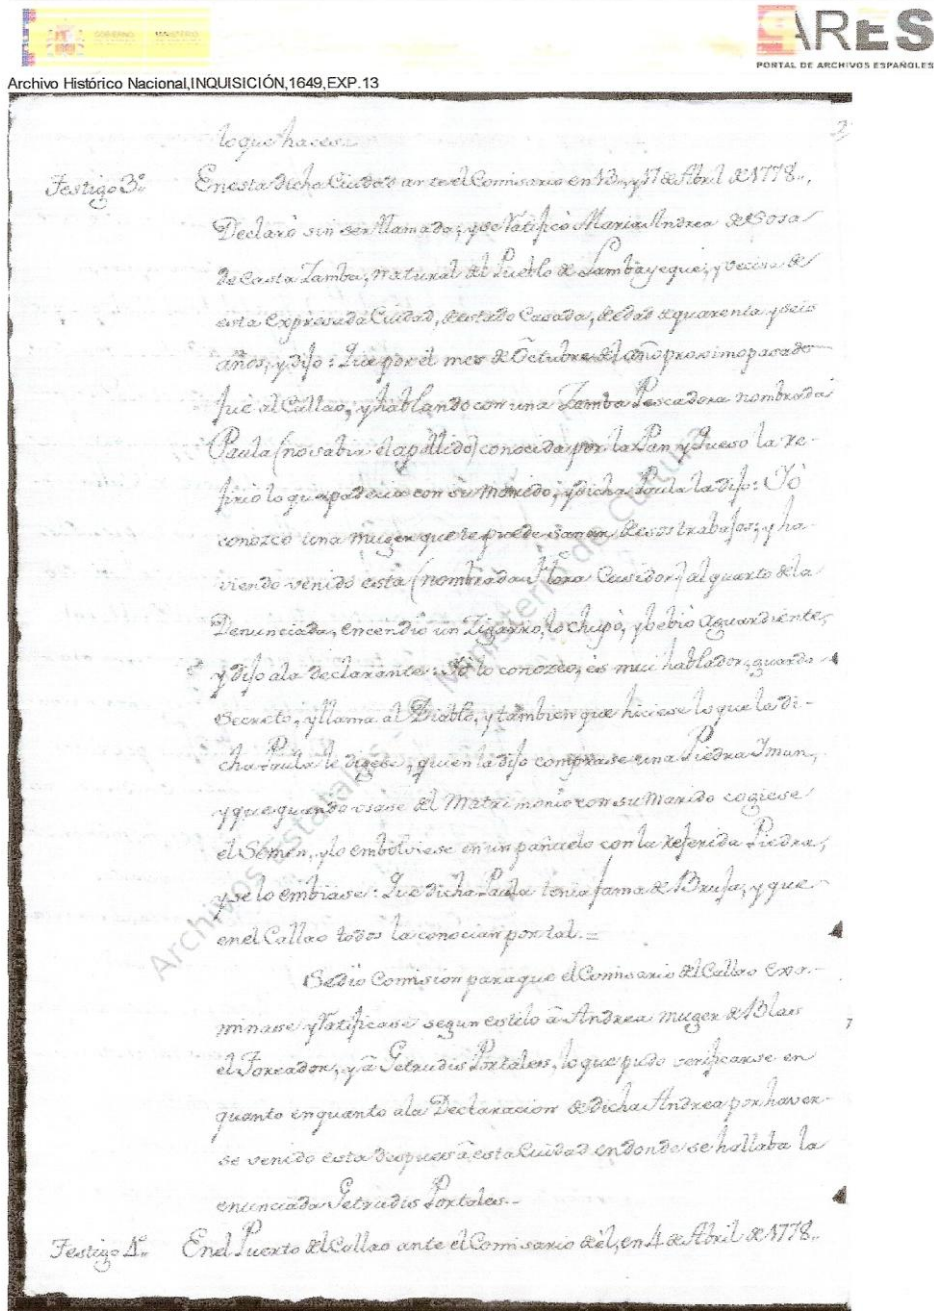 GOBIERNO MINISTERIO
ARES
PORTAL DE ARCHIVOS ESPAÑOLES
Archivo Histórico Nacional,INQUISICIÓN,1649,EXP.13
2
lo que haces=
Testigo 3º
En esta dicha Ciudad ante el Comisario en 13,, y 17 de Abril de 1778..
Declaró sin ser llamada, y se ratificó Maria Andrea de Sosa
de Casta Zamba, natural del Pueblo de Lambayeque, y vecina de
esta expresada Ciudad, de estado Casada, de edad de quarenta y seis
años, y dijo: Que por el mes de Octubre del año proximo pasado
fue al Callao, y hablando con una Zamba Pescadora nombrada
Paula (no sabia el apellido) conocida por la Pan y Queso la re-
firio lo que padecia con su Marido, y dicha Paula la dijo: Yo
conozco una muger que te puede sanar de esos trabajos; y ha-
viendo venido esta (nombrada Flora Cusidor) al quarto de la
Denunciada, encendio un Zigarro, lo chupò, y bebió Aguardiente,
y dijo ala declarante: Yo lo conozco, es mui hablador, guarda
Secreto, y llama al Diablo, y tambien que hiciese lo que la di-
cha Paula le digese, quien la dijo comprase una Piedra Yman,
y que quando usase del Matrimonio con su Marido cogiese
el Semen, y lo embolviese en un pañuelo con la referida Piedra,
y se lo embiase: Que dicha Paula tenia fama de Bruja, y que
en el Callao todos la conocian por tal.=
Se dio Comision para que el Comisario del Callao exa-
minase y ratificase segun estilo â Andrea muger de Blas
el Toreador, y â Getrudis Portales, lo que pudo verificarse en
quanto enquanto ala Declaracion de dicha Andrea por haver-
se venido esta despues â esta Ciudad en donde se hallaba la
enunciada Getrudis Portales..
Testigo 4º
En el Puerto del Callao ante el Comisario de él, en 4 de Abril de 1778..
Archivos Estatales - © Ministerio de Cultura